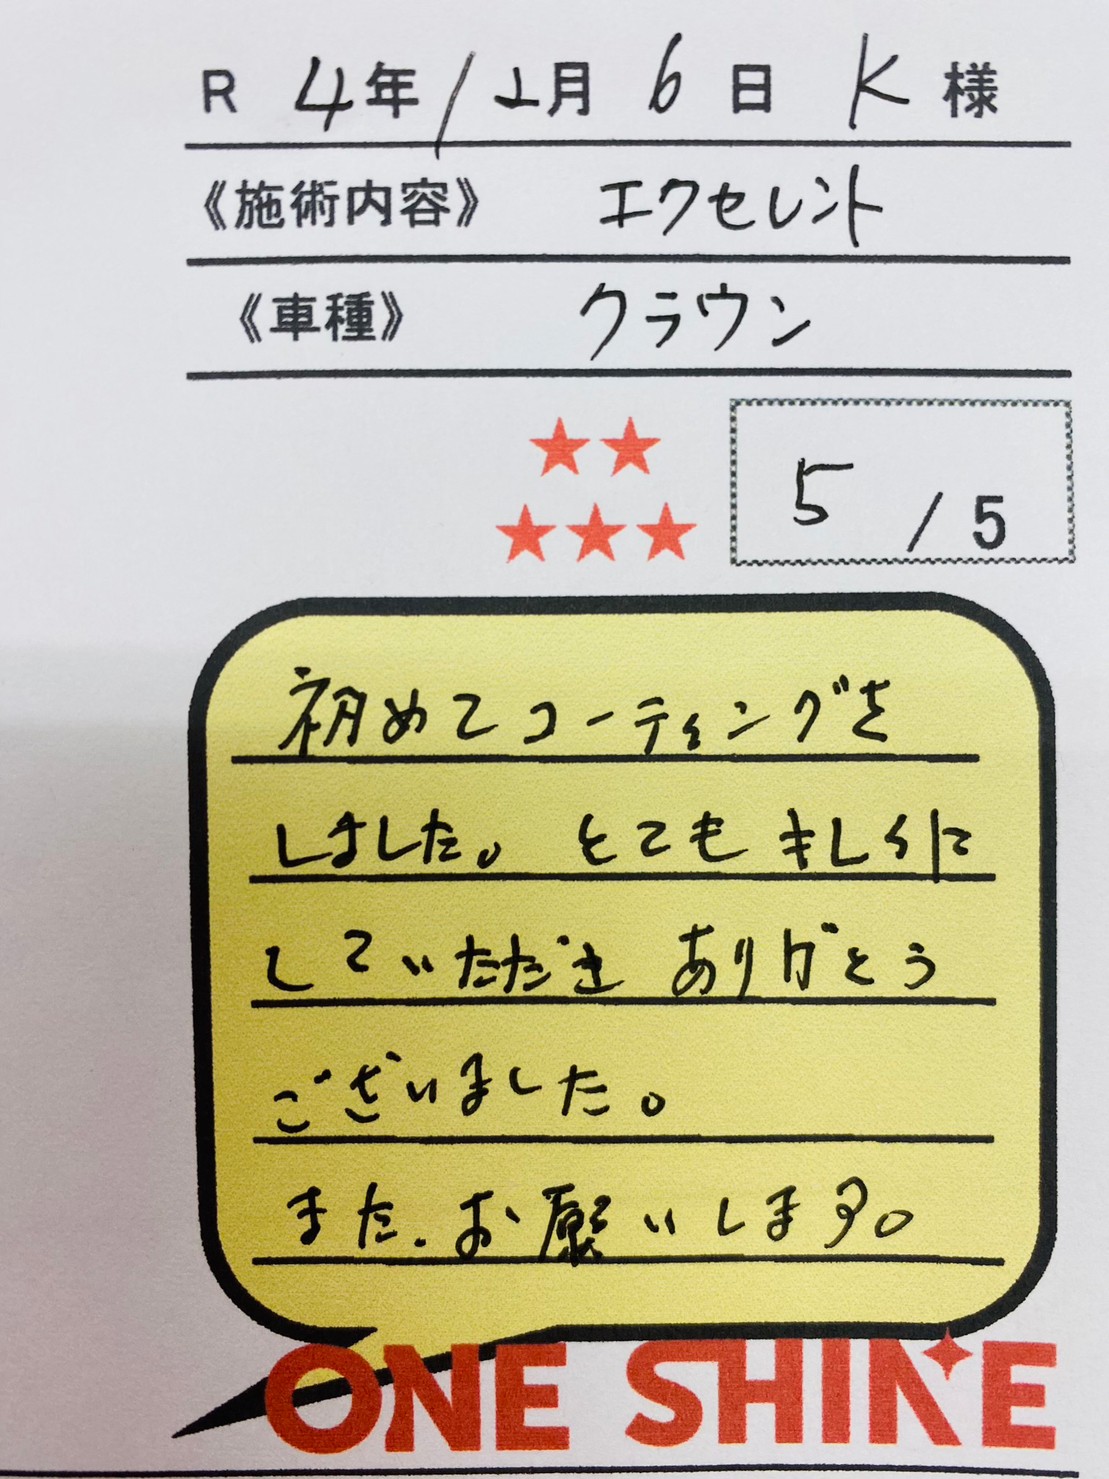 R 4年12月6日 K様
《施術内容》 エクセレント
《車種》 クラウン
★★
★★★
5/5
初めてコーティングを
しました。とてもキレイに
していただき ありがとう
ございました。
また、お願いします。
ONE SHINE